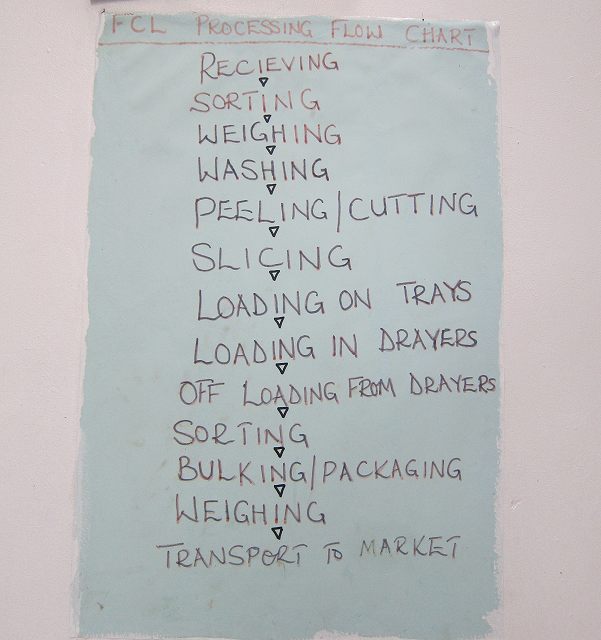 FCL PROCESSING FLOW CHART
RECIEVING
SORTING
WEIGHING
WASHING
PEELING/CUTTING
SLICING
LOADING ON TRAYS
LOADING IN DRAYERS
OFF LOADING FROM DRAYERS
SORTING
BULKING/PACKAGING
WEIGHING
TRANSPORT TO MARKET